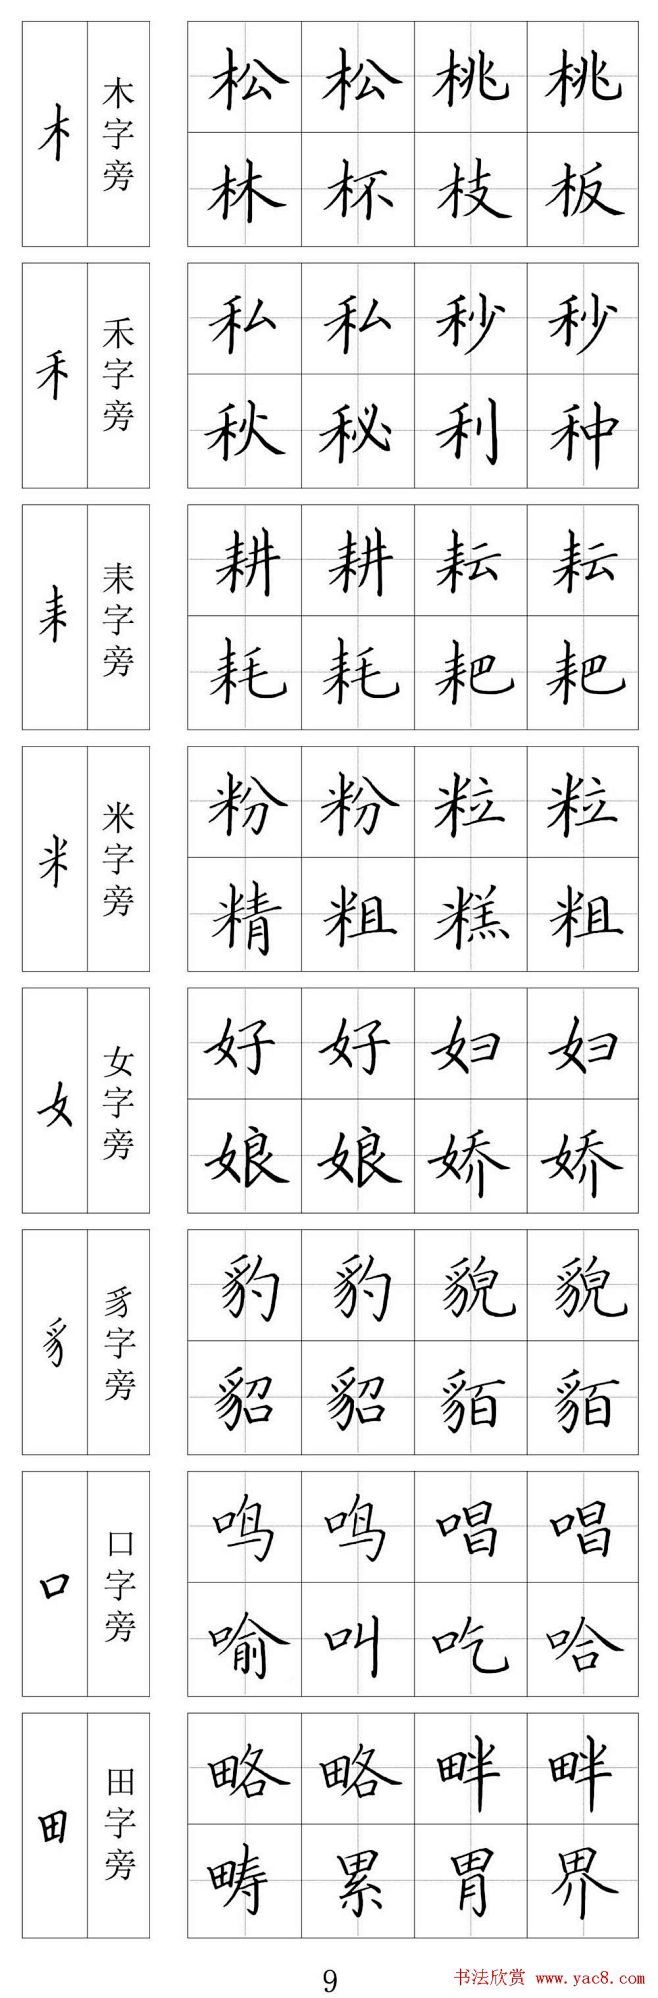 木 木字旁 松 松 桃 桃
林 杯 枝 板
禾 禾字旁 私 私 秒 秒
秋 秘 利 种
耒 耒字旁 耕 耕 耘 耘
耗 耗 耙 耙
米 米字旁 粉 粉 粒 粒
精 粗 糕 粗
女 女字旁 好 好 妇 妇
娘 娘 娇 娇
豸 豸字旁 豹 豹 貌 貌
貂 貂 貊 貊
口 口字旁 鸣 鸣 唱 唱
喻 叫 吃 哈
田 田字旁 略 略 畔 畔
畴 累 胃 界
9
书法欣赏 www.yac8.com